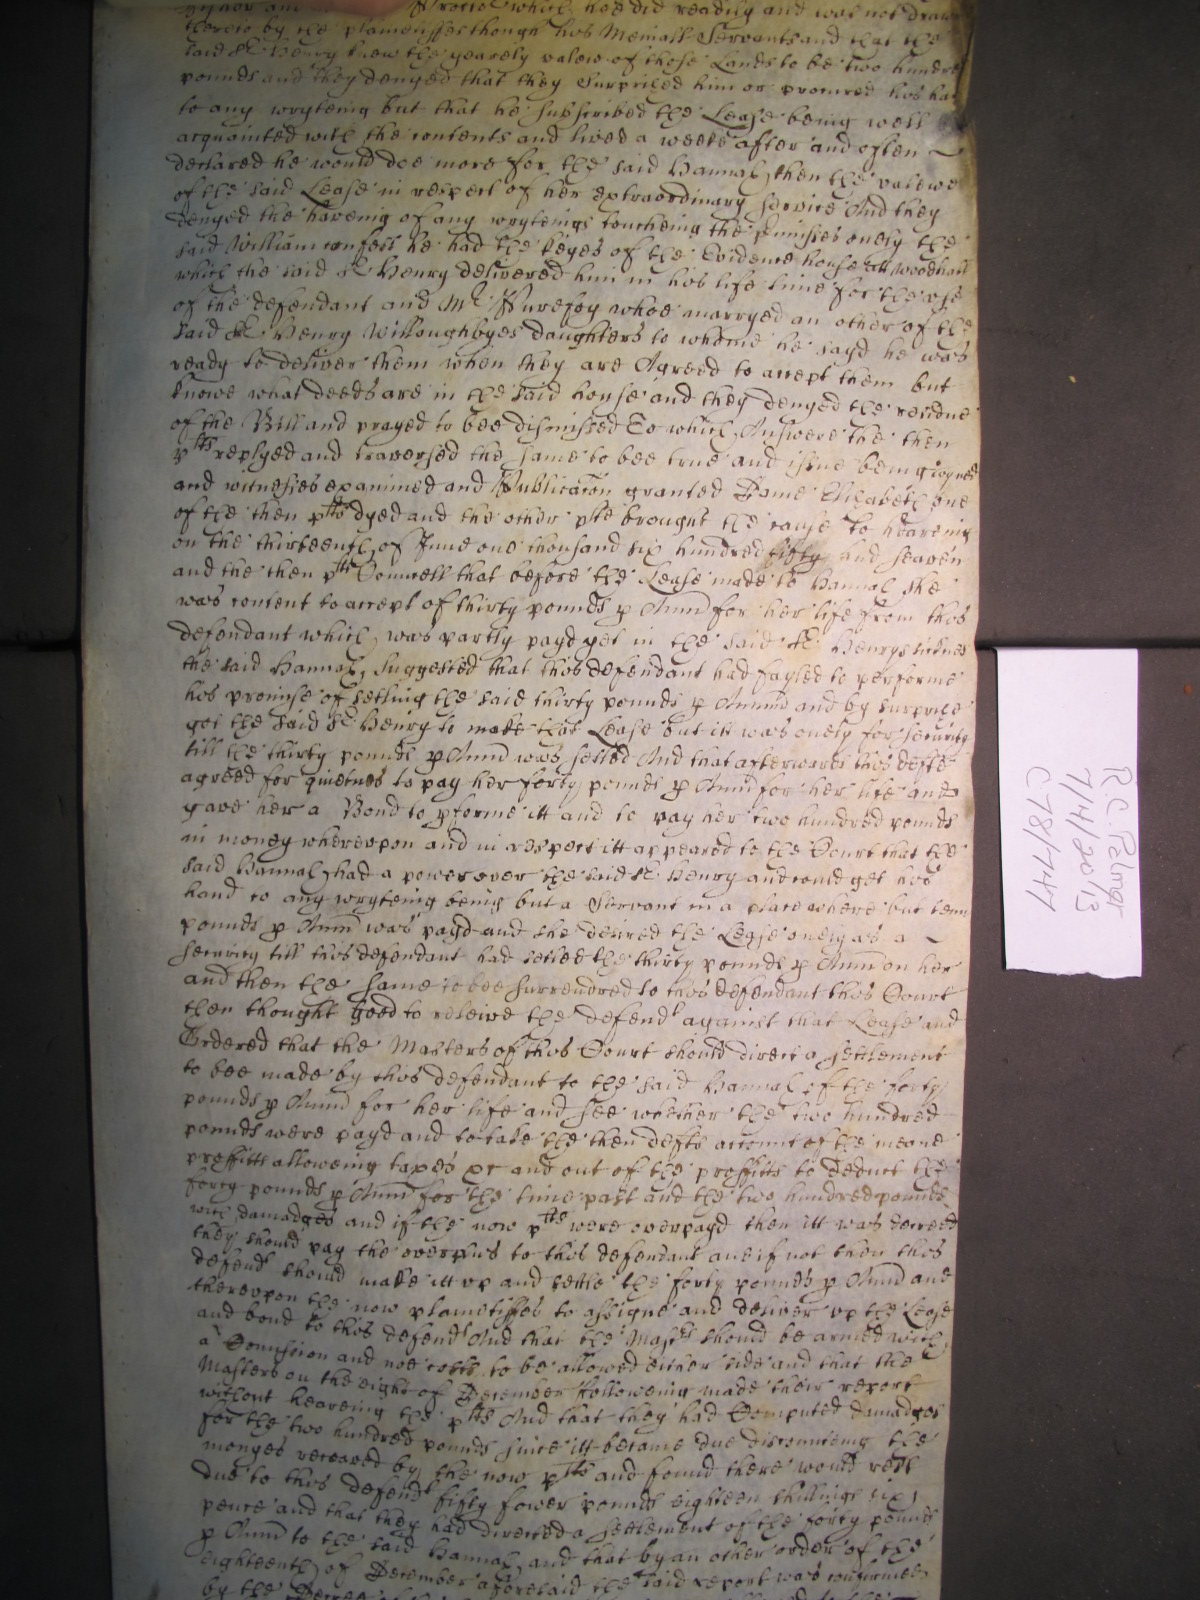 which hee did readily and was not drawne
thereto by the plaintiffes though his Meniall Servants and that the
said Sr Henry knew the yearely valew of those Lands to be two hundred
pounds and they denyed that they surprized him or procured his hand
to any wryteing but that he subscribed the Lease being well
acquainted with the contents and lived a weeke after and often
declared he would doe more for the said Hannah then the valewe
of the said Lease in respect of her extraordinary service And they
denyed the haveing of any wrytings toucheing the premisses onely the
said William confest he had the keyes of the Evidence house att Woodhall
which the said Sr Henry delivered him in his life time for the use
of the defendant and Mr Purefoy whoe marryed an other of the
said Sr Henry Willoughbyes daughters to whome he sayd he was
ready to deliver them when they are Agreed to accept them but
knowe what deeds are in the said house and they denyed the residue
of the Bill and prayed to bee dismissed To which Answere the then
plts replyed and traversed the same to bee true and issue being joyned
and witnesses examined and Publicacon granted Dame Elizabeth one
of the then plts dyed and the other plts brought the cause to heareing
on the thirteenth of June one thousand six hundred fifty and seaven
and the then plts Councell that before the Lease made to Hannah she
was content to accept of thirty pounds p Annu for her life from this
defendant which was partly payd yet in the said Sr Henrys sicknes
the said Hannah suggested that this defendant had fayled to performe
his promise of setling the said thirty pounds p Annu and by surprize
got the said Sr Henry to make that Lease but itt was onely for security
till the thirty pounds p Annu was setled And that afterwards this defte
agreed for quietnes to pay her forty pounds p Annu for her life and
gave her a Bond to pforme itt and to pay her two hundred pounds
in money whereupon and in respect itt appeared to the Court that the
said Hannah had a power over the said Sr Henry and could get his
hand to any wryteing being but a Servant in a place where but tenn
pounds p Annu was payd and she desired the Lease onely as a
security till this defendant had setled the thirty pounds p Annu on her
and then the same to bee surrendred to this defendant this Court
then thought good to releive the defendt against that Lease and
Ordered that the Masters of this Court should direct a settlement
to bee made by this defendant to the said Hannah of the forty
pounds p Annu for her life and see whether the two hundred
pounds were payd and to take the then defts account of the meane
proffitts allowing taxes &c and out of the proffitts to deduct the
forty pounds p Annu for the time past and the two hundred pounds
with damadges and if the now plts were overpayd then itt was decreed
they should pay the overplus to this defendant and if not then this
defendt should make itt up and settle the forty pounds p Annu and
thereupon the now plaintiffes to assigne and deliver up the Lease
and bond to this defendt And that the Masters should be armed with
a Comission and noe costs to be allowed either side and that the
Masters on the eight of December followeing made their report
without heareing the plts And that they had Computed damadges
for the two hundred pounds since itt became due discounting the
monyes receaved by the now plts and found there would rest
due to this defendt fifty fower pounds eighteen shillings six
pence and that they had directed a settlement of the forty pounds
p Annu to the said Hannah and that by an other order of the
eighteenth of December aforesaid the said report was confirmed
by the Decree
R.C. Palmer
7/4/2013
C78/747